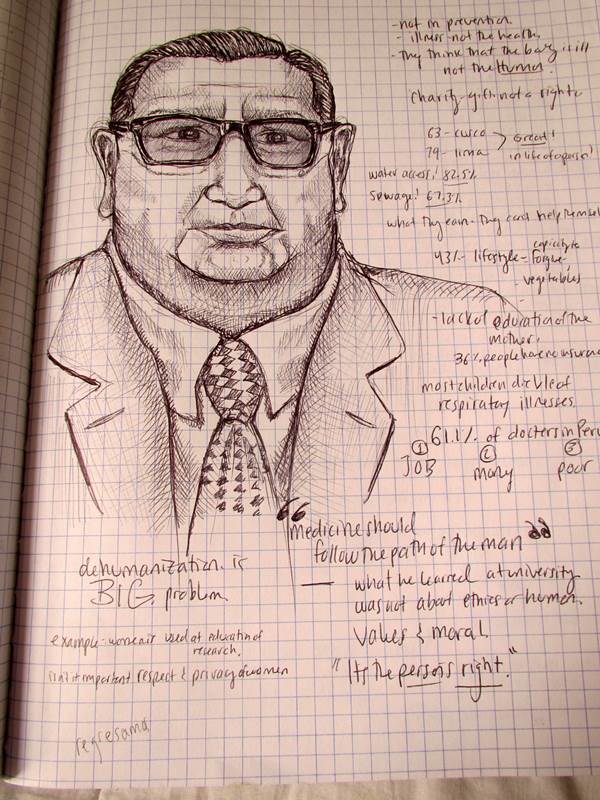 - not in prevention
- illness - not the health.
- They think that the body is ill
not the Human.
Charity gift not a right
63 - cusco
79 - lima
Great!
in life of a person!
water access: 82.5%
sewage: 67.3%
what they earn - They can't help themselves
43% - lifestyle -
- vegetables
- lack of education of the
mother.
36% people have no insurance
most children die b/c of
respiratory illnesses.
61.1% of doctors in Peru
① ② ③
JOB money poor
"medicine should
follow the path of the man"
— what he learned at university
was not about ethics or human
values & moral.
"It's the person's right."
dehumanization is
BIG problem
example - women used at education of
research.
isn't it important respect & privacy of women
regresama